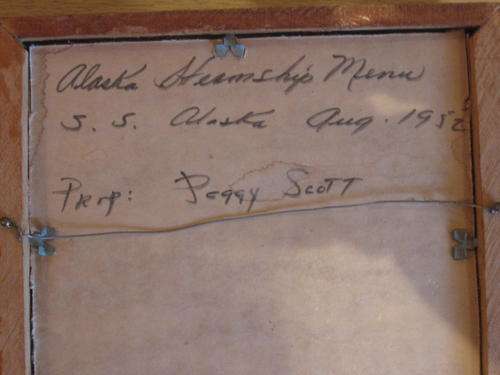 Alaska Steamship Menu
S. S. Alaska Aug. 1952
Prop: Peggy Scott